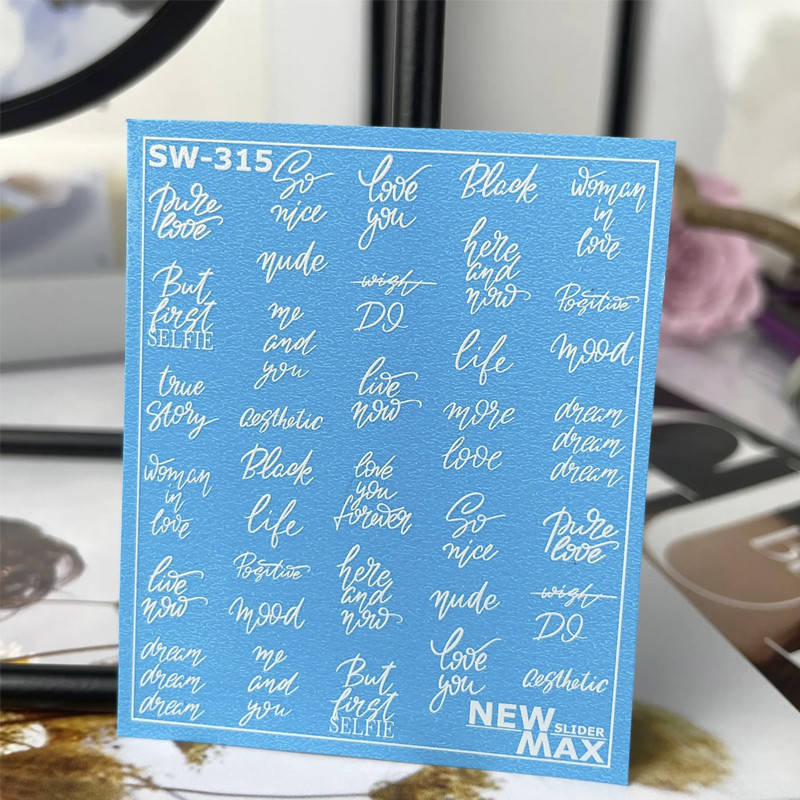 SW-315
Pure
love
But
first
SELFIE
true
story
woman
in
love
live
now
dream
dream
dream
So
nice
nude
me
and
you
aesthetic
Black
life
Positive
mood
me
and
you
love
you
wish
DO
live
now
love
you
forever
here
and
now
But
first
SELFIE
Black
here
and
now
life
more
love
So
nice
nude
love
you
woman
in
love
Positive
mood
dream
dream
dream
Pure
love
wish
DO
aesthetic
NEW
SLIDER
MAX